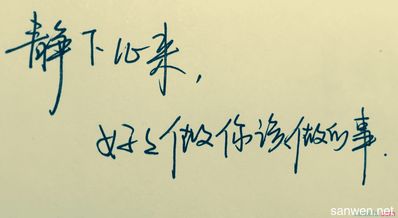 静下心来，
好好做你该做的事.
sanwen.net